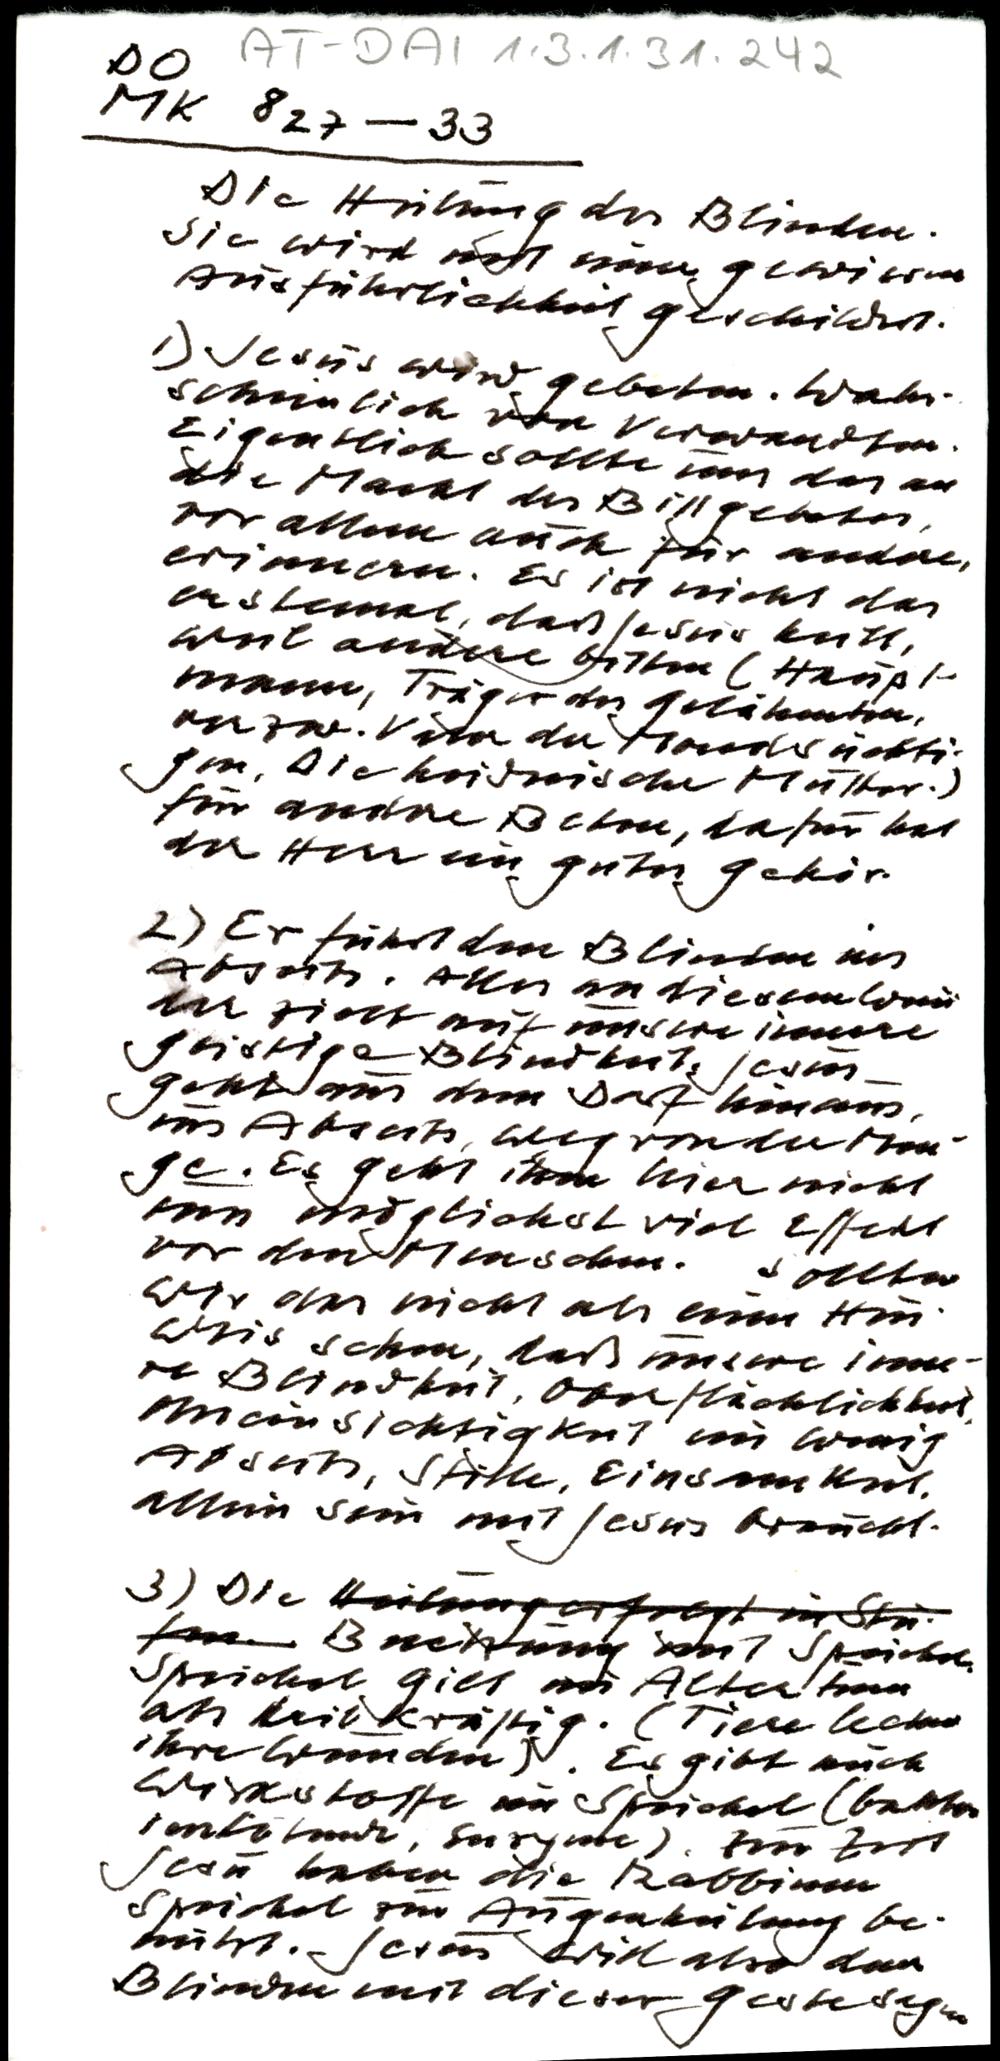 AT-DAI 1.3.1.31.242
DO
MK 8 27-33
Die Heilung des Blinden.
Sie wird mit einer gewissen
Ausführlichkeit geschildert.
1) Jesus wird gebeten. Wahr-
scheinlich von Verwandten.
Eigentlich sollte uns das an
die Macht des Bittgebetes,
vor allem auch für andere,
erinnern. Es ist nicht das
erstemal, daß Jesus heilt,
weil andere bitten (Haupt-
mann, Träger des Gelähmten,
verzw. Vater des Mondsüchti-
gen, Die heidnische Mutter.)
für andere Beten, dafür hat
der Herr ein gutes Gehör.
2) Er führt den Blinden ins
Abseits. Alles an diesem Wun
der zielt auf unsere innere
geistige Blindheit. Jesus
geht aus dem Dorf hinaus,
ins Abseits, weg von der Men-
ge. Es geht ihm hier nicht
um möglichst viel Effekt
vor den Menschen. Sollten
wir das nicht als einen Hin-
weis sehen, daß unsere inne-
re Blindheit, Oberflächlichkeit,
Uneinsichtigkeit ein wenig
Abseits, Stille, Einsamkeit,
allein sein mit Jesus braucht.
3) Die Heilung erfolgt in Stu-
fen. Benetzung mit Speichel.
Speichel gilt im Altertum
als heilkräftig. (Tiere lecken
ihre Wunden). Es gibt auch
Wirkstoffe im Speichel (bakter
ientötende, Enzyme). Zur Zeit
Jesu haben die Rabbinen
Speichel zur Augenheilung be-
nützt. Jesus will also dem
Blinden mit dieser Geste sagen